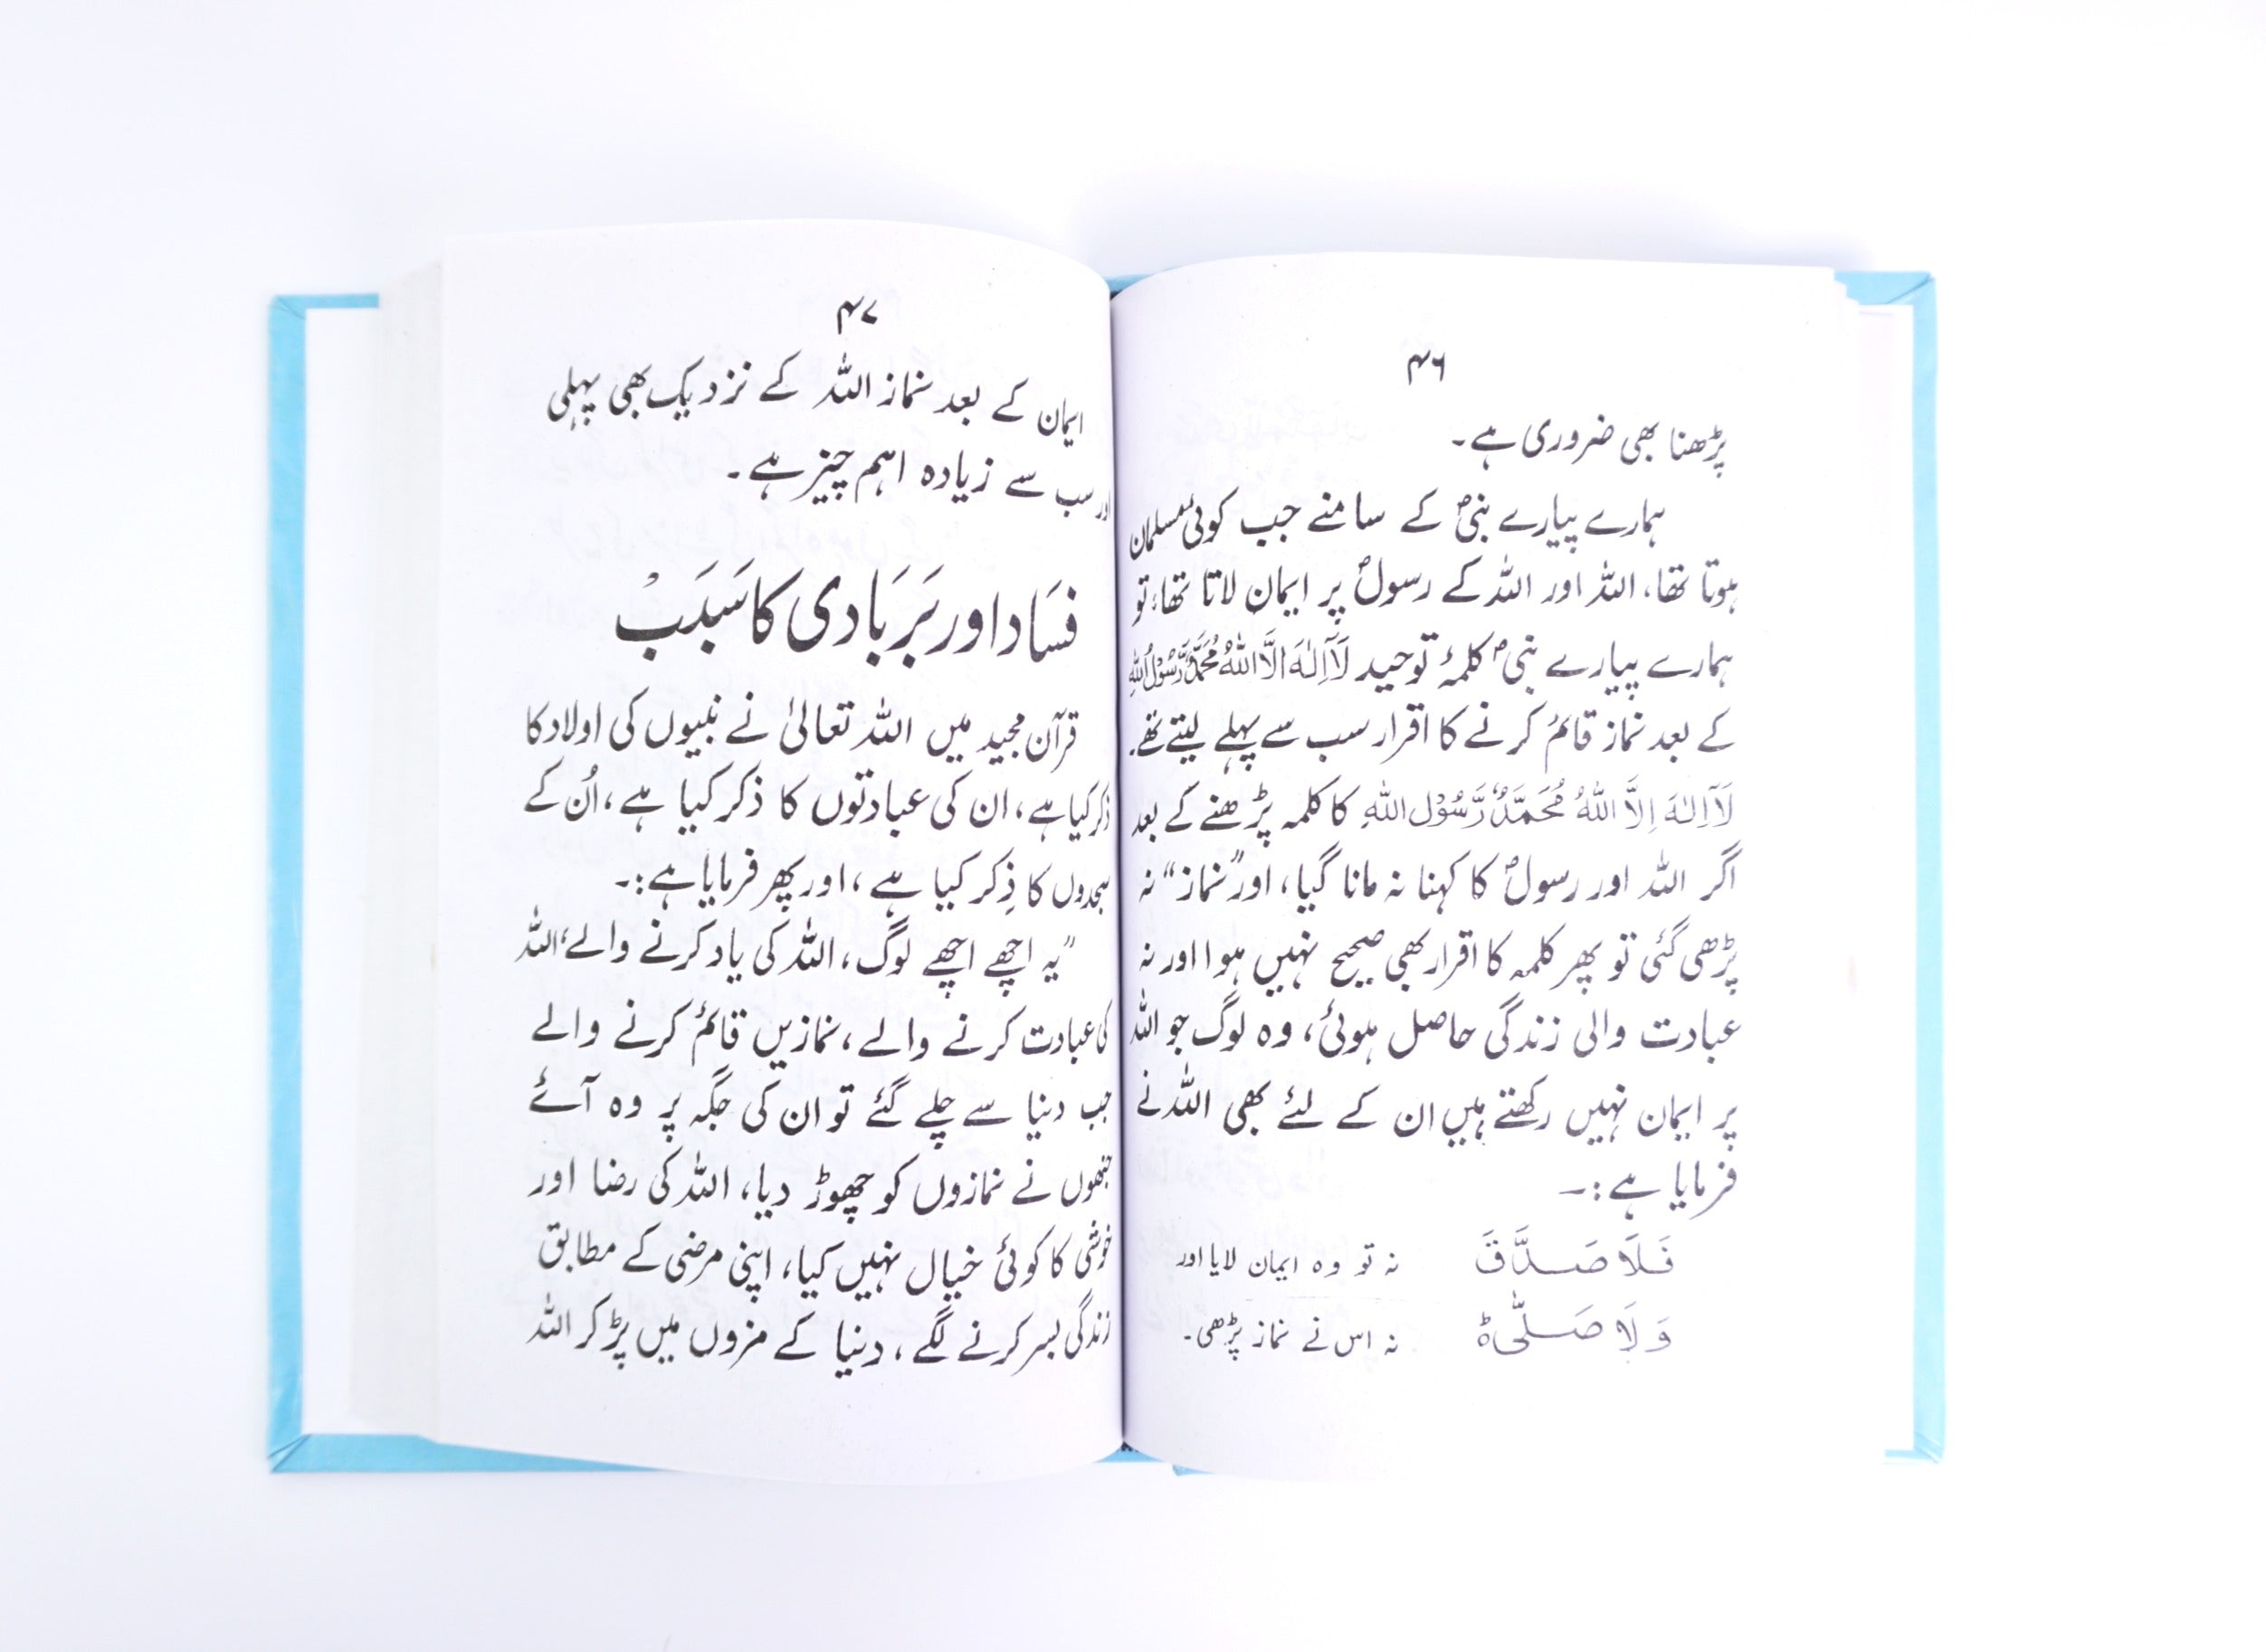 ۴۶
پڑھنا بھی ضروری ہے۔
ہمارے پیارے نبیؐ کے سامنے جب کوئی مسلمان
ہوتا تھا، اللہ اور اللہ کے رسولؐ پر ایمان لاتا تھا، تو
ہمارے پیارے نبیؐ کلمۂ توحید لَآاِلٰہَ اِلَّا اللہُ مُحَمَّدٌ رَّسُوْلُ اللہِ
کے بعد نماز قائم کرنے کا اقرار سب سے پہلے لیتے تھے۔
لَآاِلٰہَ اِلَّا اللہُ مُحَمَّدٌ رَّسُوْلُ اللہِ کا کلمہ پڑھنے کے بعد
اگر اللہ اور رسولؐ کا کہنا نہ مانا گیا، اور ”نماز“ نہ
پڑھی گئی تو پھر کلمہ کا اقرار بھی صحیح نہیں ہوا اور نہ
عبادت والی زندگی حاصل ہوئی، وہ لوگ جو اللہ
پر ایمان نہیں رکھتے ہیں ان کے لئے بھی اللہ نے
فرمایا ہے:۔
فَلَا صَدَّقَ نہ تو وہ ایمان لایا اور
وَلَا صَلّٰی ہ نہ اس نے نماز پڑھی۔
۴۷
ایمان کے بعد نماز اللہ کے نزدیک بھی پہلی
اور سب سے زیادہ اہم چیز ہے۔
فسَاد اور بَربَادی کا سَبَبْ
قرآن مجید میں اللہ تعالیٰ نے نبیوں کی اولاد کا
ذکر کیا ہے، ان کی عبادتوں کا ذکر کیا ہے، اُن کے
سجدوں کا ذِکر کیا ہے، اور پھر فرمایا ہے:۔
”یہ اچھے اچھے لوگ، اللہ کی یاد کرنے والے، اللہ
کی عبادت کرنے والے، نمازیں قائم کرنے والے
جب دنیا سے چلے گئے تو ان کی جگہ پر وہ آئے
جنھوں نے نمازوں کو چھوڑ دیا، اللہ کی رضا اور
خوشی کا کوئی خیال نہیں کیا، اپنی مرضی کے مطابق
زندگی بسر کرنے لگے، دنیا کے مزوں میں پڑ کر اللہ